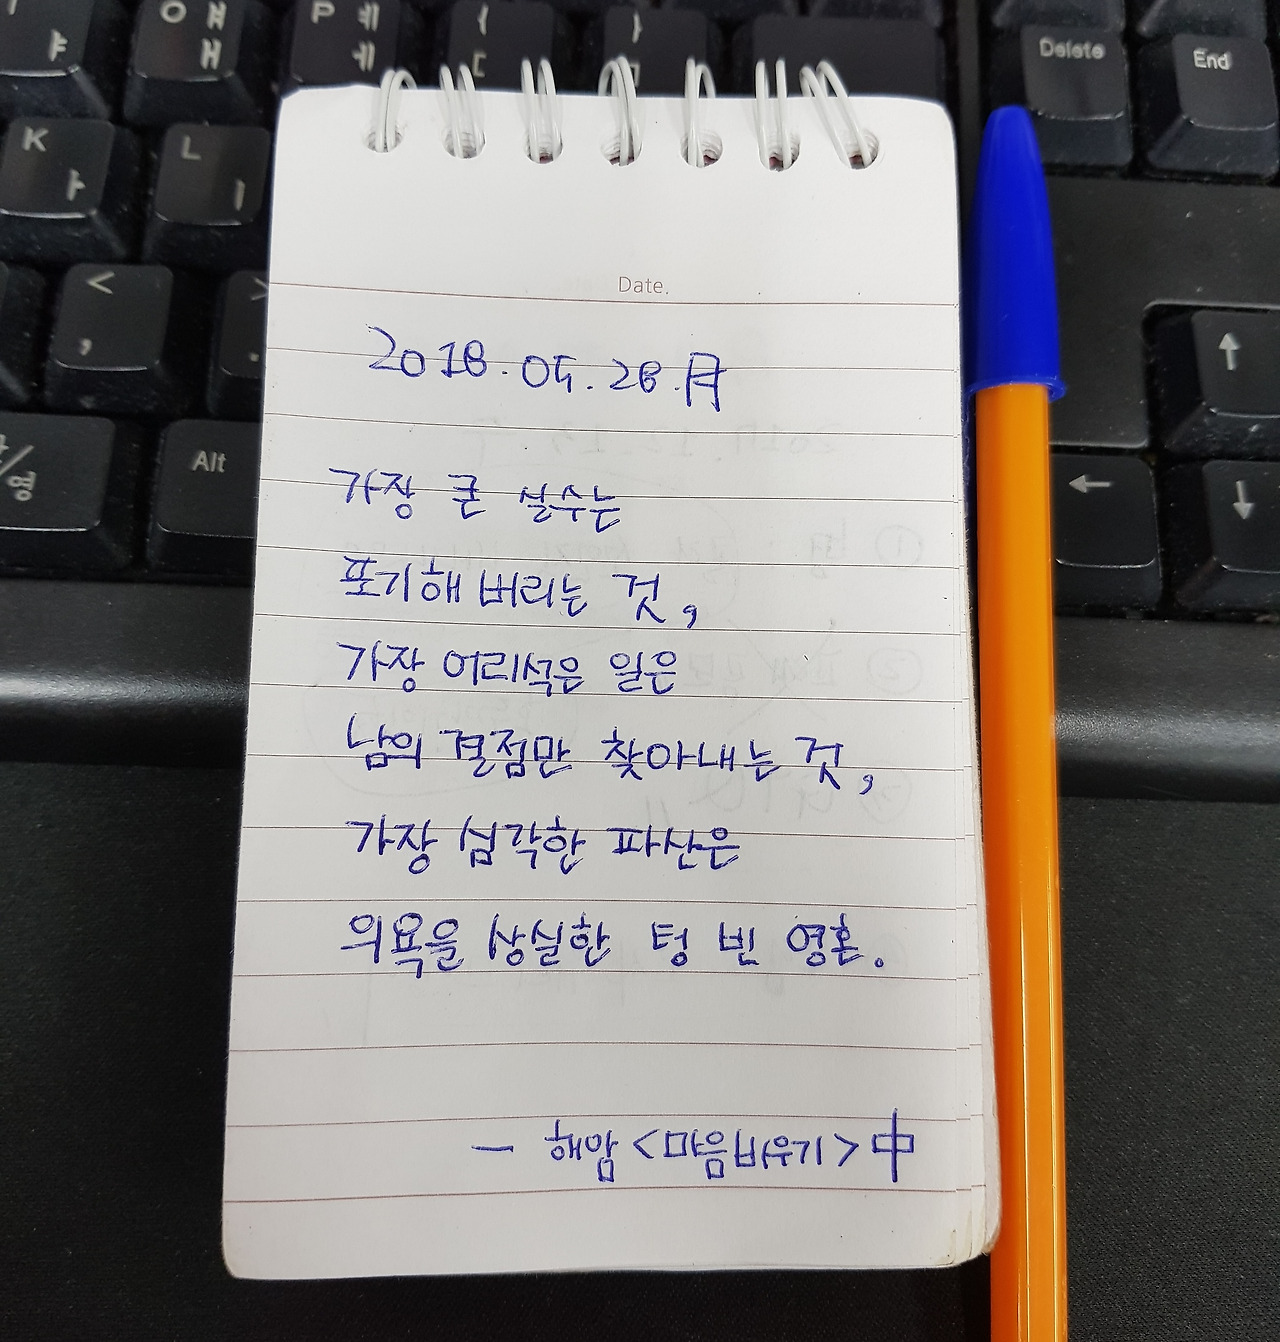 ㅑ
O ㅒ
ㅐ
P ㅖ
ㅔ
{
[
}
]
Delete
End
K
ㅏ
L
ㅣ
<
,
>
/영
Alt
↑
←
↓
Date.
2018.05.28.月
가장 큰 실수는
포기해 버리는 것,
가장 어리석은 일은
남의 결점만 찾아내는 것,
가장 심각한 파산은
의욕을 상실한 텅 빈 영혼.
— 해암 <마음비우기> 中